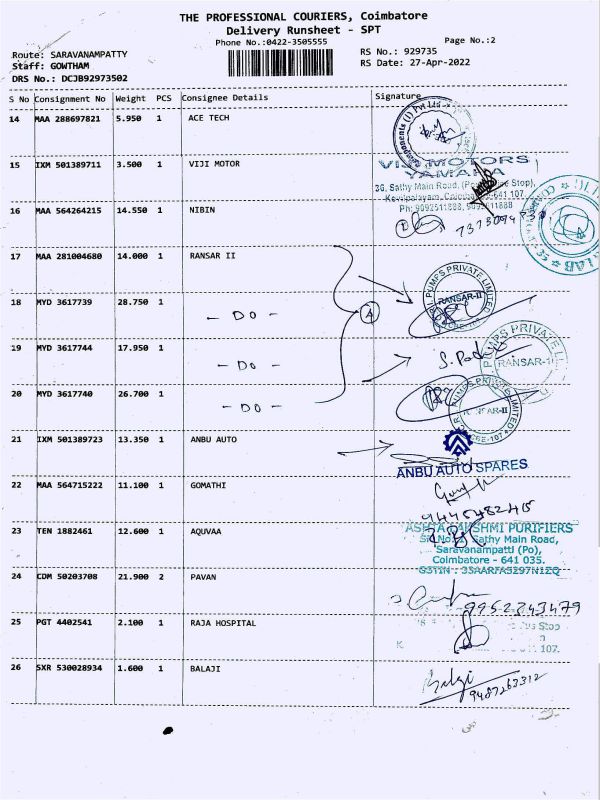 THE PROFESSIONAL COURIERS, Coimbatore
Delivery Runsheet - SPT
Phone No.:0422-3505555
Page No.:2
Route: SARAVANAMPATTY
RS No.: 929735
Staff: GOWTHAM
RS Date: 27-Apr-2022
DRS No.: DCJB92973502
S No Consignment No Weight PCS Consignee Details Signature
14 MAA 288697821 5.950 1 ACE TECH
15 IXM 501389711 3.500 1 VIJI MOTOR
VIJI MOTORS
YAMAHA
36, Sathy Main Road, Stop),
Coimbatore-641 107.
Ph: 9092511888,
16 MAA 564264215 14.550 1 NIBIN
LAB
17 MAA 281004680 14.000 1 RANSAR II
18 MYD 3617739 28.750 1 - DO - A
PUMPS PRIVATE LIMITED
RANSAR-II
19 MYD 3617744 17.950 1 - DO -
PUMPS PRIVATE
RANSAR-1
20 MYD 3617740 26.700 1 - DO -
PUMPS PRIVATE LIMITED
21 IXM 501389723 13.350 1 ANBU AUTO
ANBU AUTO SPARES
22 MAA 564715222 11.100 1 GOMATHI
23 TEN 1882461 12.600 1 AQUVAA
ASHTALAKSHMI PURIFIERS
Sathy Main Road,
Saravanampatti (Po),
Coimbatore - 641 035.
GSTIN : 33AARFA5297N1ZQ
24 CDM 50203708 21.900 2 PAVAN
9952243479
25 PGT 4402541 2.100 1 RAJA HOSPITAL
Stop
107.
26 SXR 530028934 1.600 1 BALAJI
Balaji
9487263312